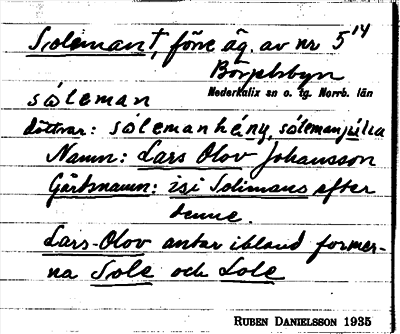 Solimant, förre äg. av nr 5¹⁴
Börjelsbyn
Nederkalix sn o. tg. Norrb. län
sóleman
döttrar: sólemanhény, sólemanjúlia
Namn: Lars Olov Johansson
Gårdsnamn: isi Solimans efter
denne.
Lars-Olov antar ibland former-
na Sole och Lole
RUBEN DANIELSSON 1935